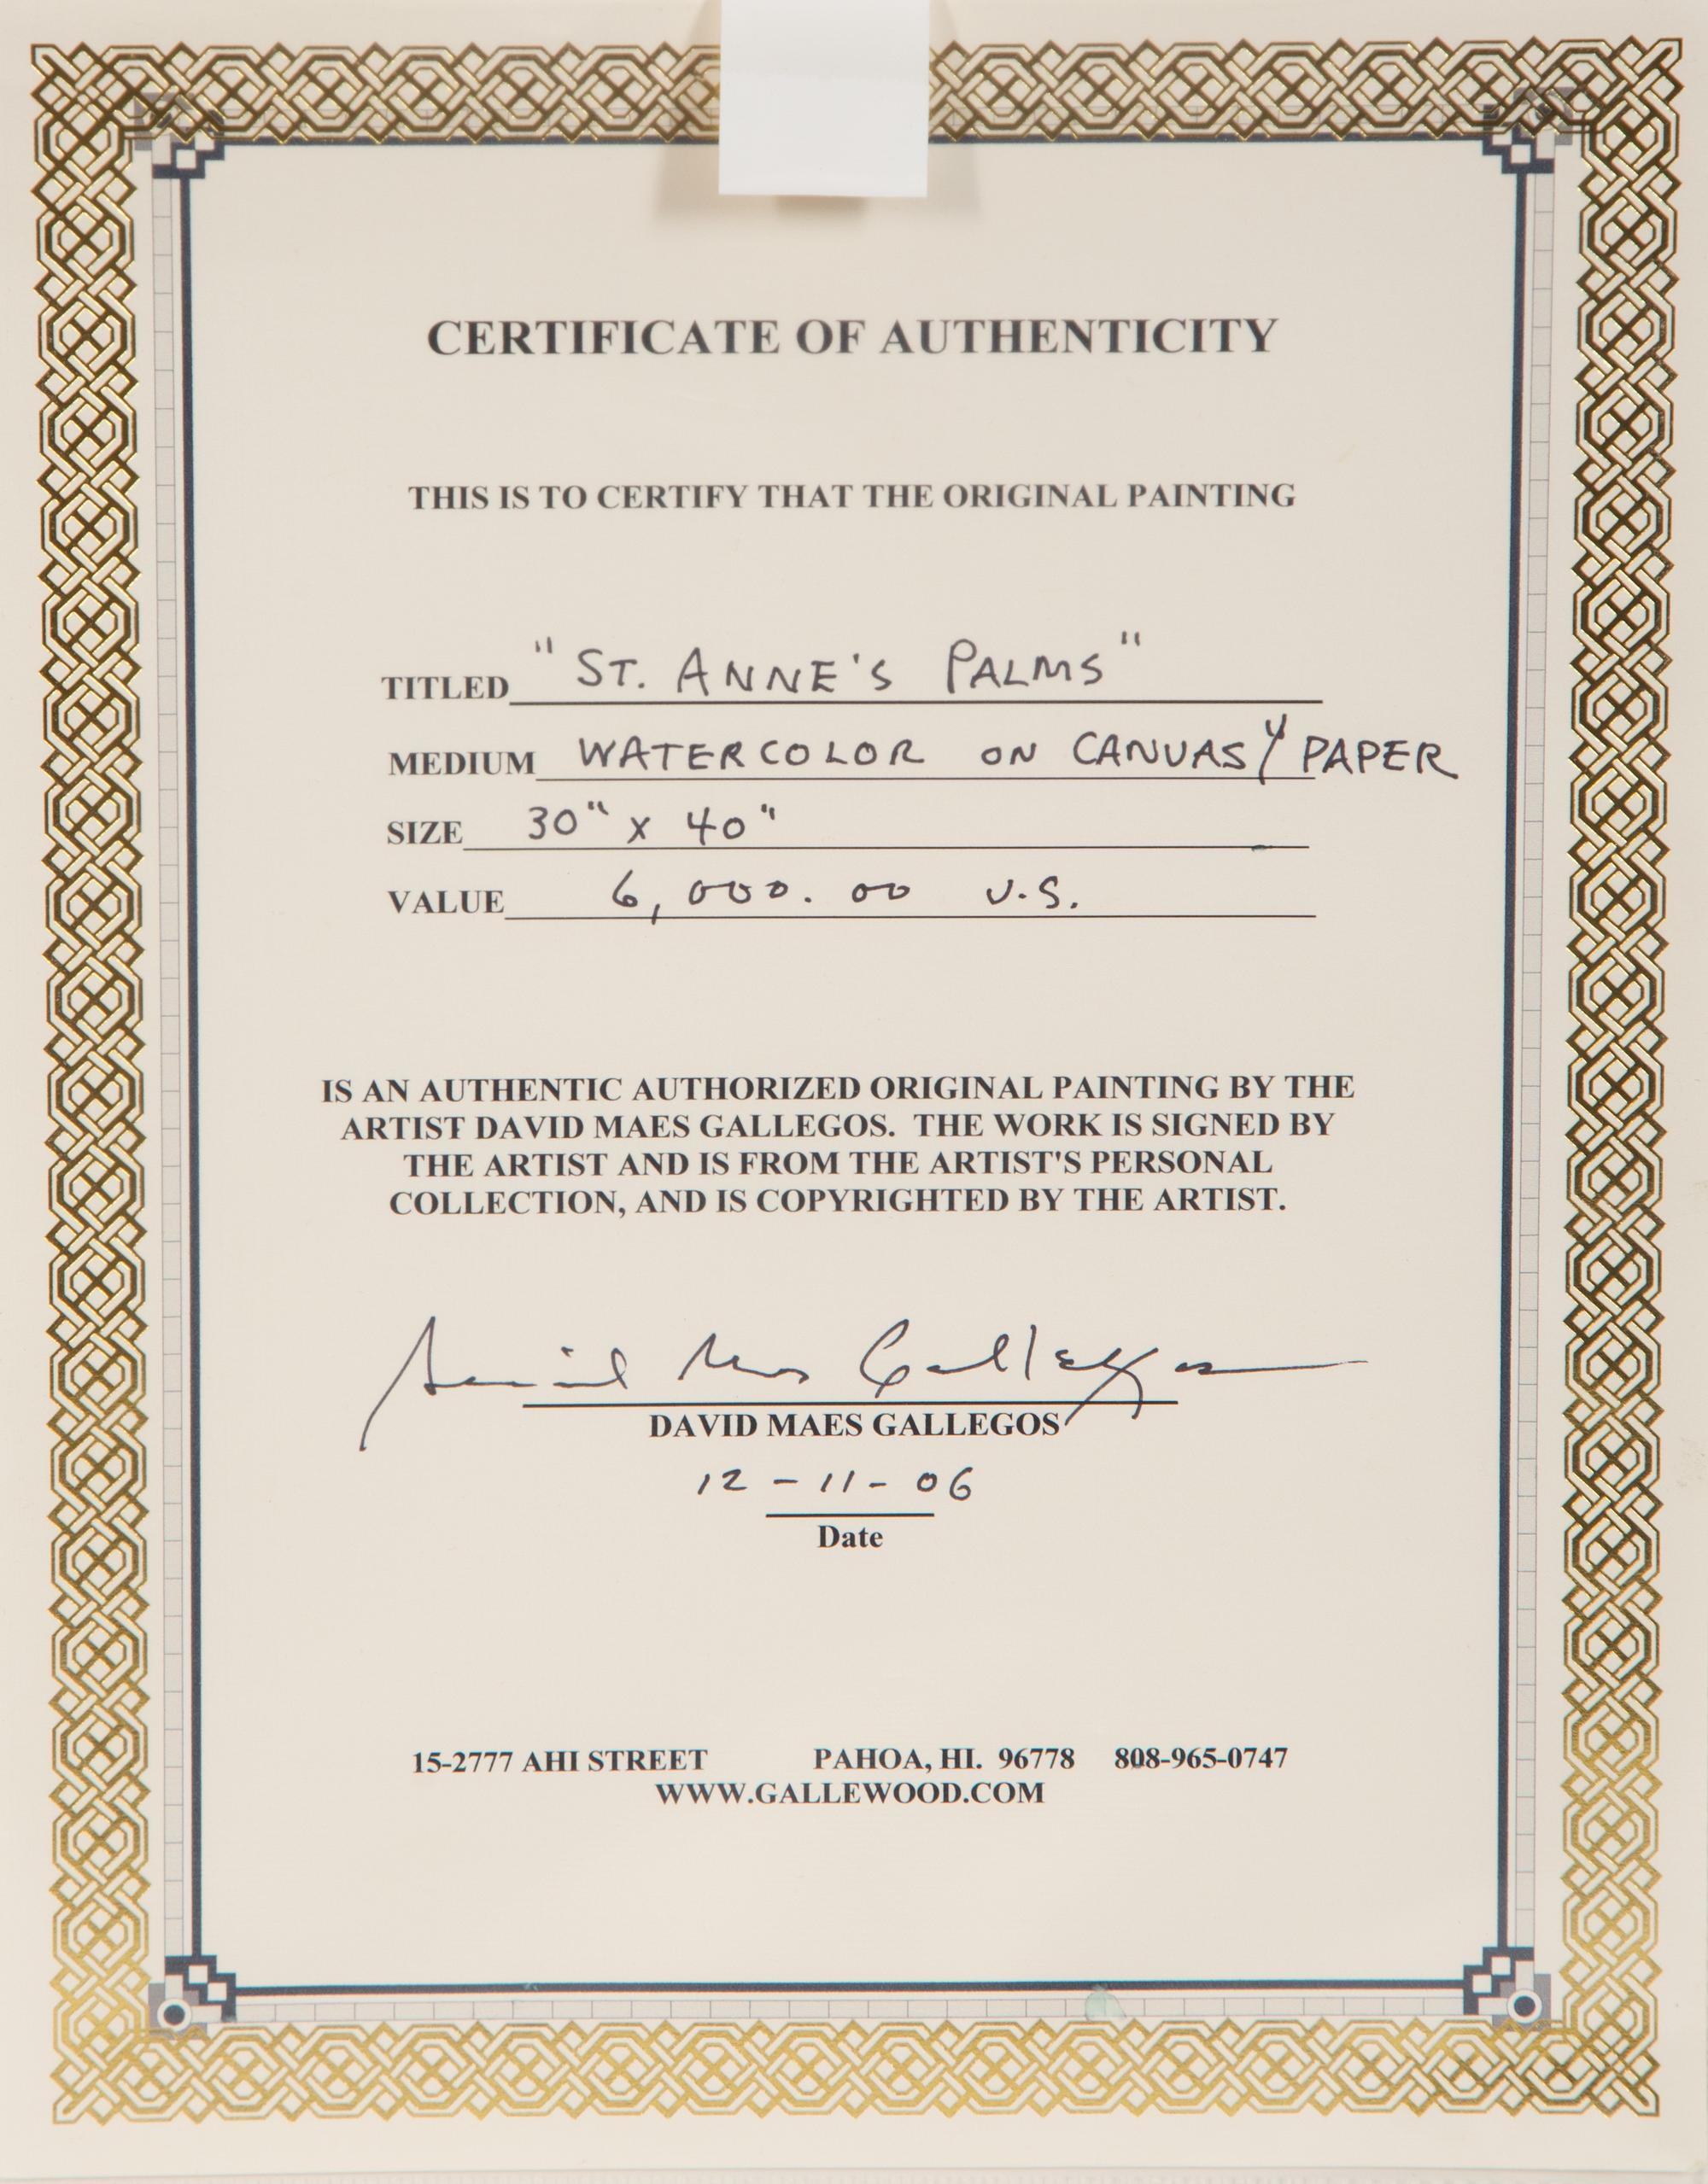 CERTIFICATE OF AUTHENTICITY
THIS IS TO CERTIFY THAT THE ORIGINAL PAINTING
TITLED "ST. ANNE'S PALMS"
MEDIUM WATERCOLOR ON CANVAS Y PAPER
SIZE 30" X 40"
VALUE 6,000.00 U.S.
IS AN AUTHENTIC AUTHORIZED ORIGINAL PAINTING BY THE
ARTIST DAVID MAES GALLEGOS. THE WORK IS SIGNED BY
THE ARTIST AND IS FROM THE ARTIST'S PERSONAL
COLLECTION, AND IS COPYRIGHTED BY THE ARTIST.
David Maes Gallegos
DAVID MAES GALLEGOS
12-11-06
Date
15-2777 AHI STREET PAHOA, HI. 96778 808-965-0747
WWW.GALLEWOOD.COM